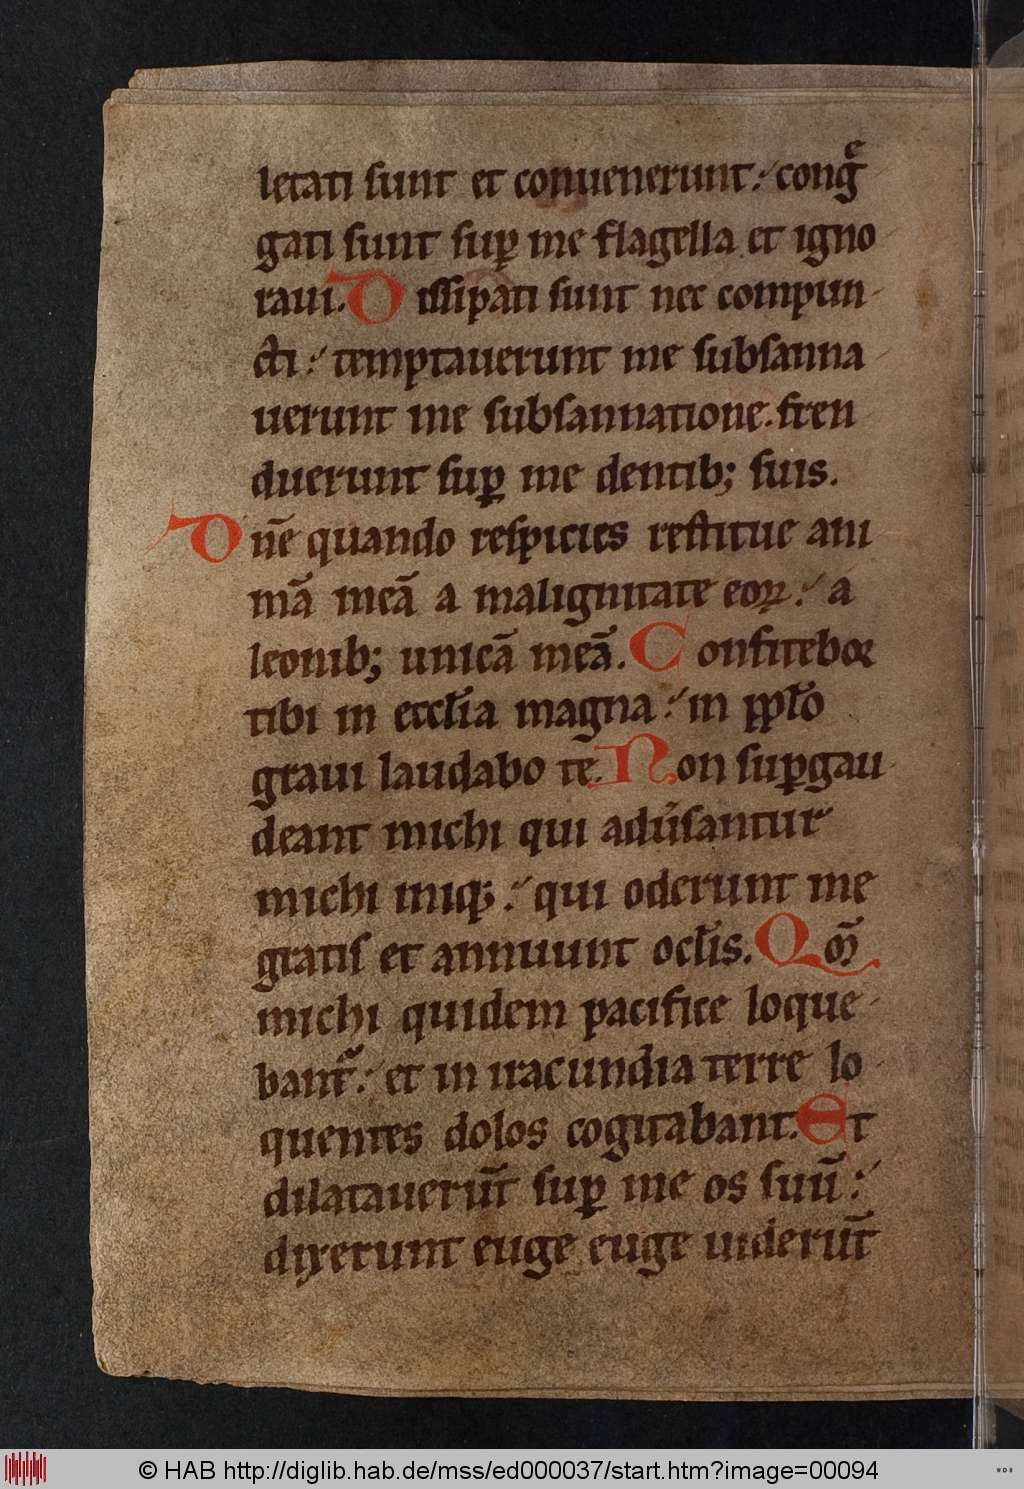 letati sunt et conuenerunt: congͤ
gati sunt suꝑ me flagella et igno
raui. Dissipati sunt nec compun-
cti: temptauerunt me subsanna
uerunt me subsannatione. fren
duerunt suꝑ me dentib; suis.
Dn̄e quando respicies restitue ani
mā meā a malignitate eoꝝ: a
leonib; unicā meā. Confitebor
tibi in eccl̄ia magna: in ppl̄o
graui laudabo te. Non suꝑgau
deant michi qui adu̾santur
michi iniq;: qui oderunt me
gratis et annuunt ocl̄is. Qm̄
michi quidem pacifice loque
bant᷑: et in iracundia terre lo
quentes dolos cogitabant. Et
dilatauerūt suꝑ me os suū:
dixerunt euge euge uiderūt
© HAB http://diglib.hab.de/mss/ed000037/start.htm?image=00094